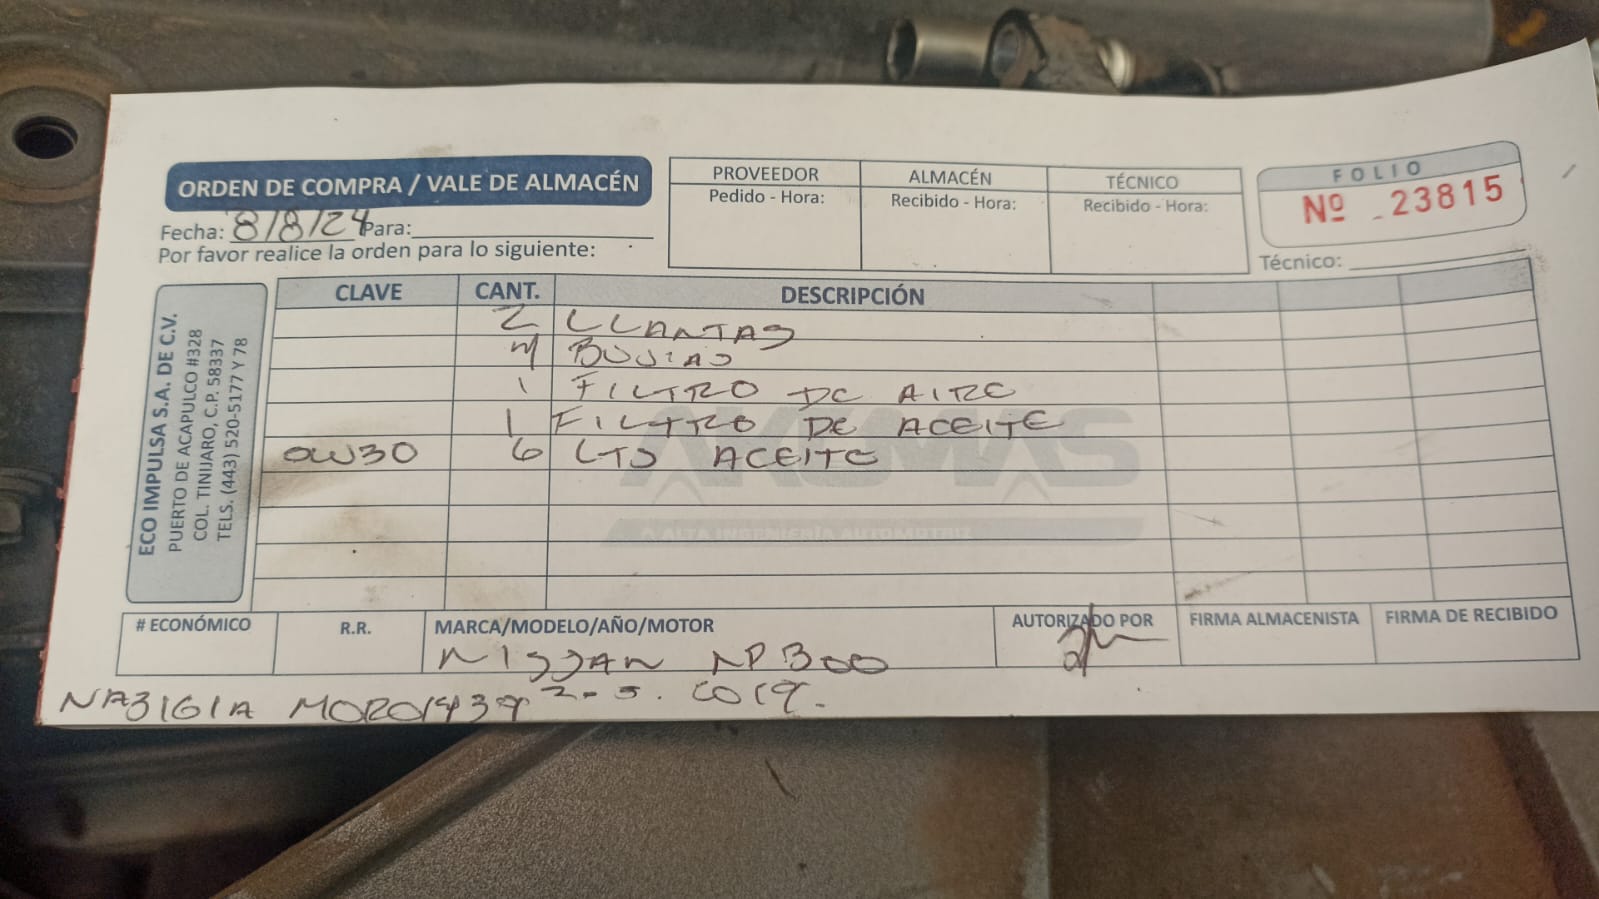 ORDEN DE COMPRA / VALE DE ALMACÉN
Fecha: 8/8/24 Para:
Por favor realice la orden para lo siguiente:
PROVEEDOR ALMACÉN TÉCNICO
Pedido - Hora: Recibido - Hora: Recibido - Hora:
FOLIO
Nº 23815
Técnico:
ECO IMPULSA S.A. DE C.V.
PUERTO DE ACAPULCO #328
COL. TINIJARO, C.P. 58337
TELS. (443) 520-5177 Y 78
CLAVE CANT. DESCRIPCIÓN
2 LLANTAS
4 BUJIAS
1 FILTRO DE AIRE
1 FILTRO DE ACEITE
0W30 6 LTS ACEITE
AKUMAS
ALTA INGENIERÍA AUTOMOTRIZ
# ECONÓMICO R.R. MARCA/MODELO/AÑO/MOTOR AUTORIZADO POR FIRMA ALMACENISTA FIRMA DE RECIBIDO
NISSAN NP300